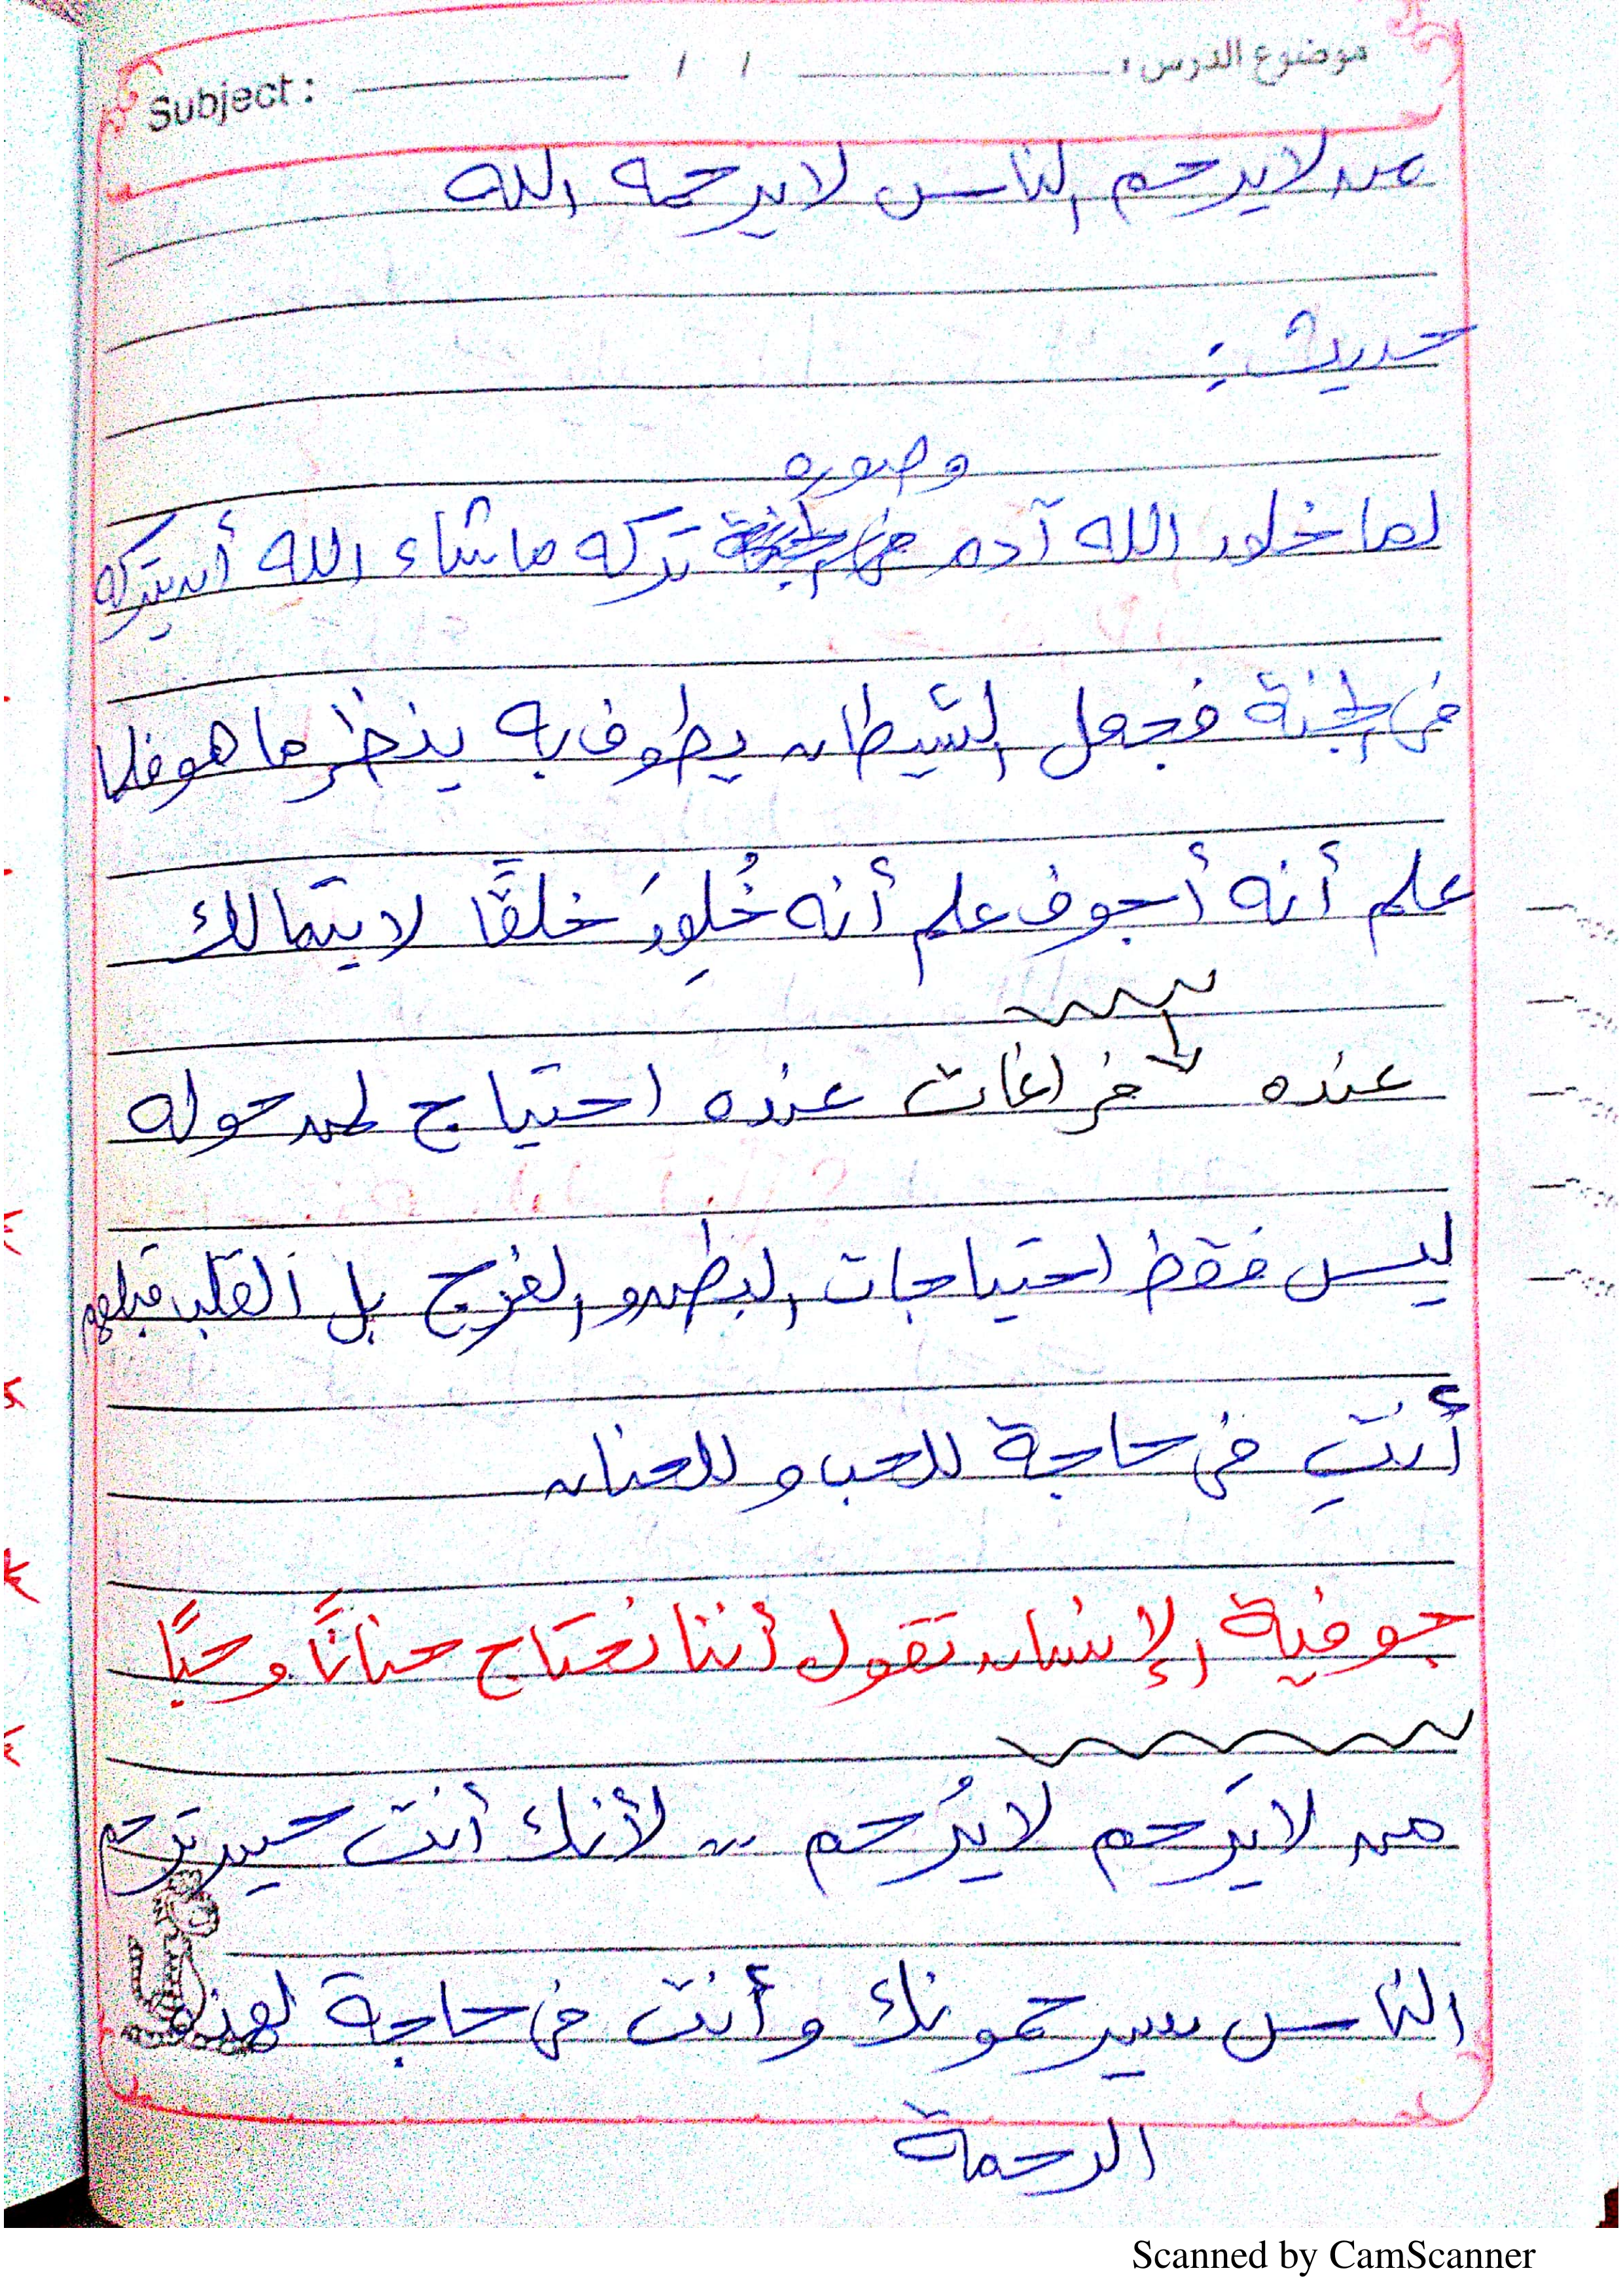 موضوع الدرس : / / Subject :
من لا يرحم الناس لا يرحمه الله
حديث :
وصوره
لما خلق الله آدم تركه ما شاء الله أن يتركه
فى الجنة فجعل الشيطان يطوف به ينظر ما هو فلما
علم أنه أجوف علم أنه خُلِقَ خلقًا لا يتمالك
عنده فراغات عنده احتياج لمن حوله
ليس فقط احتياجات البطن والفرج بل القلب قبلهم
أنتِ فى حاجة للحب و للحنان
جوفية الإنسان تقول أننا نحتاج حنانًا وحبًا
من لا يَرحم لا يُرحم .. لأنك أنت حين ترحم
الناس سيرحمونك وأنت فى حاجة لهذه
الرحمة
Scanned by CamScanner